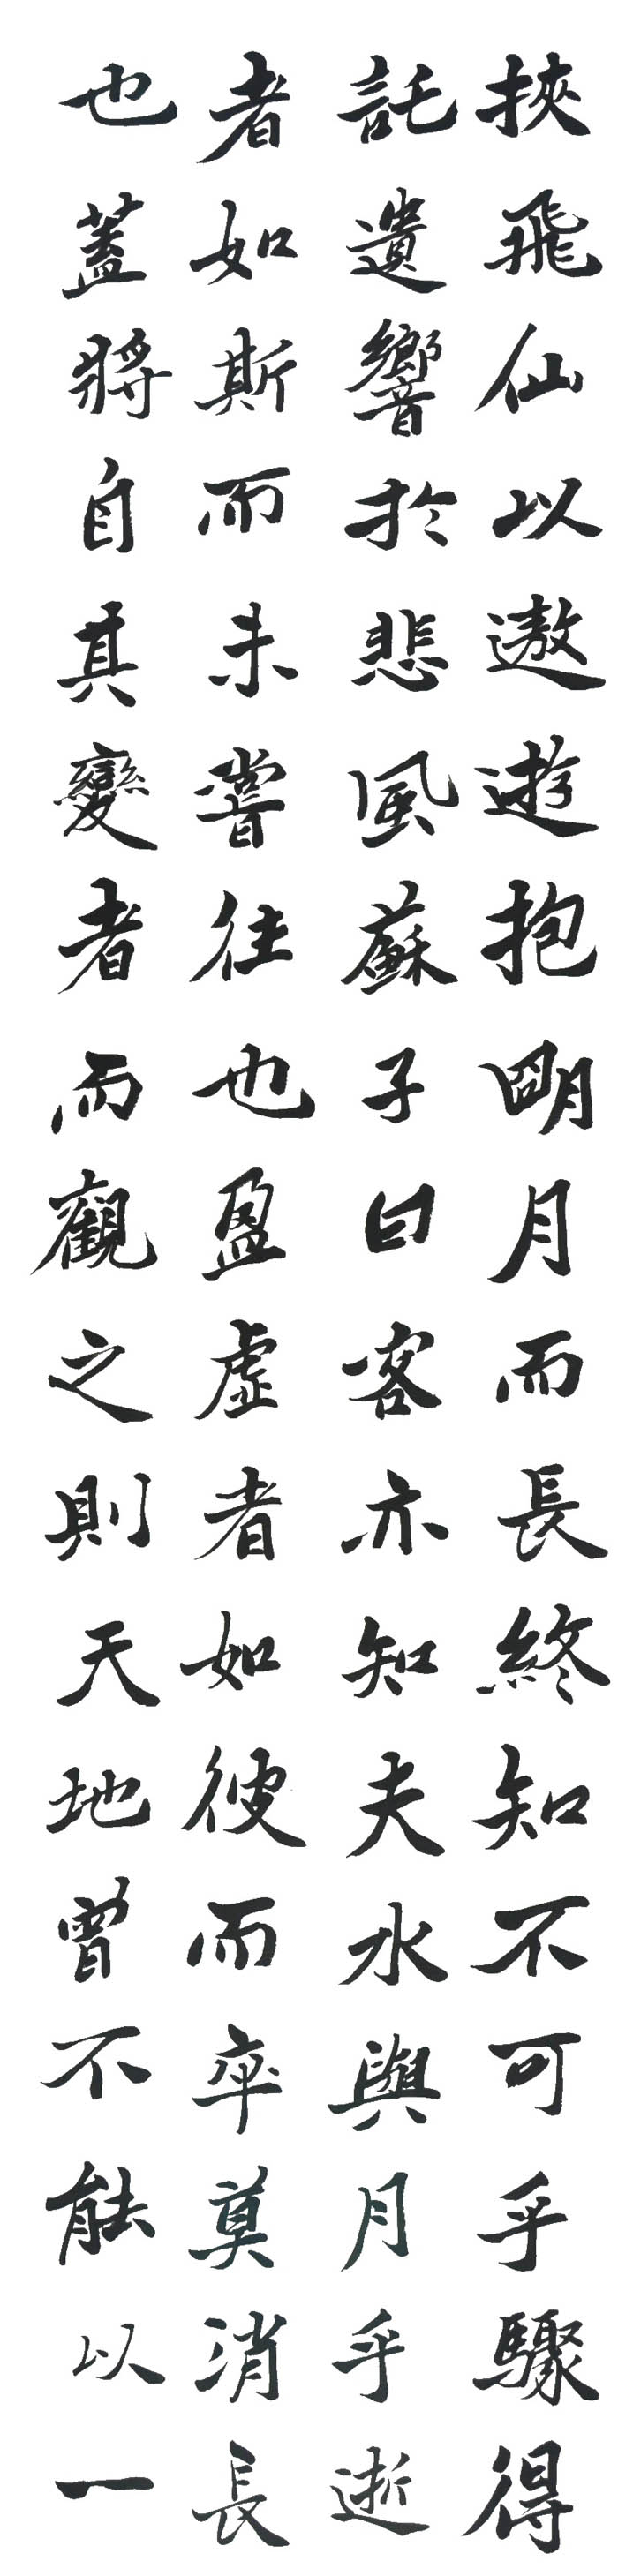 挾飛仙以遨遊抱明月而長終知不可乎驟得
託遺響於悲風蘇子曰客亦知夫水與月乎逝
者如斯而未嘗往也盈虛者如彼而卒莫消長
也蓋將自其變者而觀之則天地曾不能以一